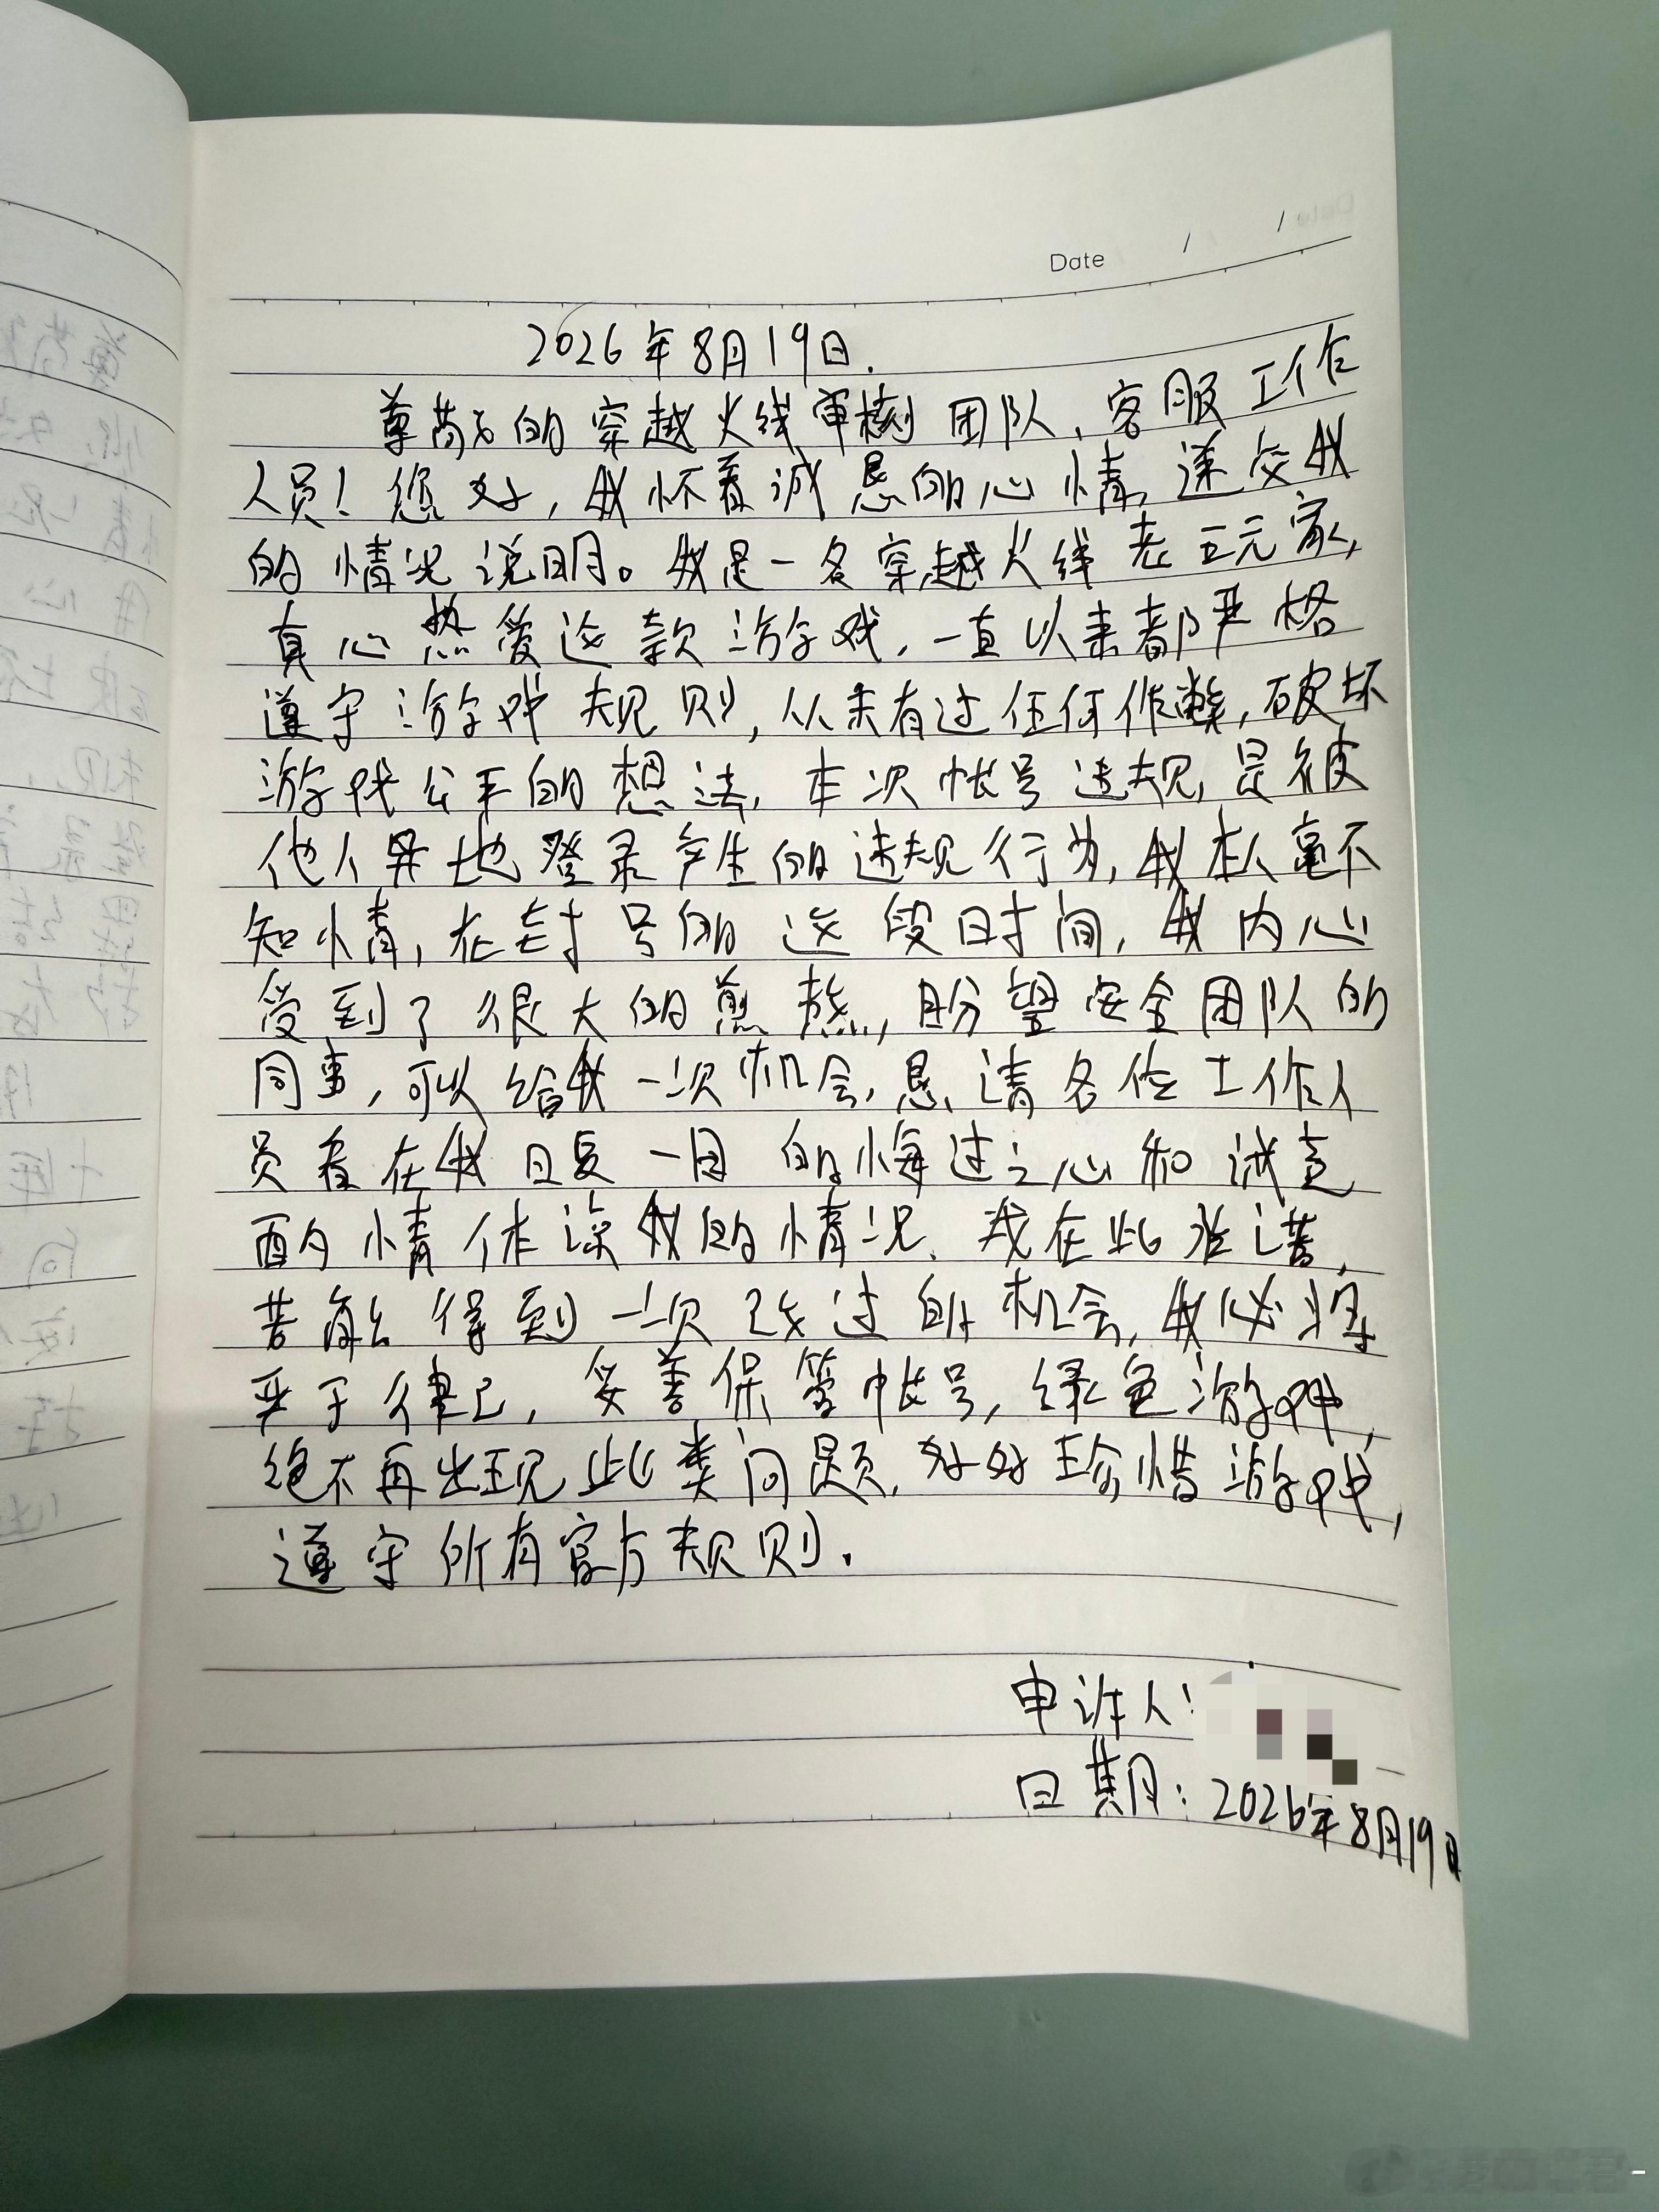 Date / /
2026年8月19日.
尊敬的穿越火线审核团队、客服工作
人员！您好，我怀着诚恳的心情，递交我
的情况说明。我是一名穿越火线老玩家，
真心热爱这款游戏，一直以来都严格
遵守游戏规则，从未有过任何作弊，破坏
游戏公平的想法，本次帐号违规，是被
他人异地登录产生的违规行为，我本人毫不
知情，在封号的这段时间，我内心
受到了很大的煎熬，盼望安全团队的
同事，可以给我一次机会，恳请各位工作人
员看在我日复一日的悔过之心和诚意
酌情体谅我的情况、我在此承诺，
若能得到一次改过的机会，我必将
严于律己，妥善保管帐号，绿色游戏，
绝不再出现此类问题，好好珍惜游戏，
遵守所有官方规则.
申诉人:
日期：2026年8月19日